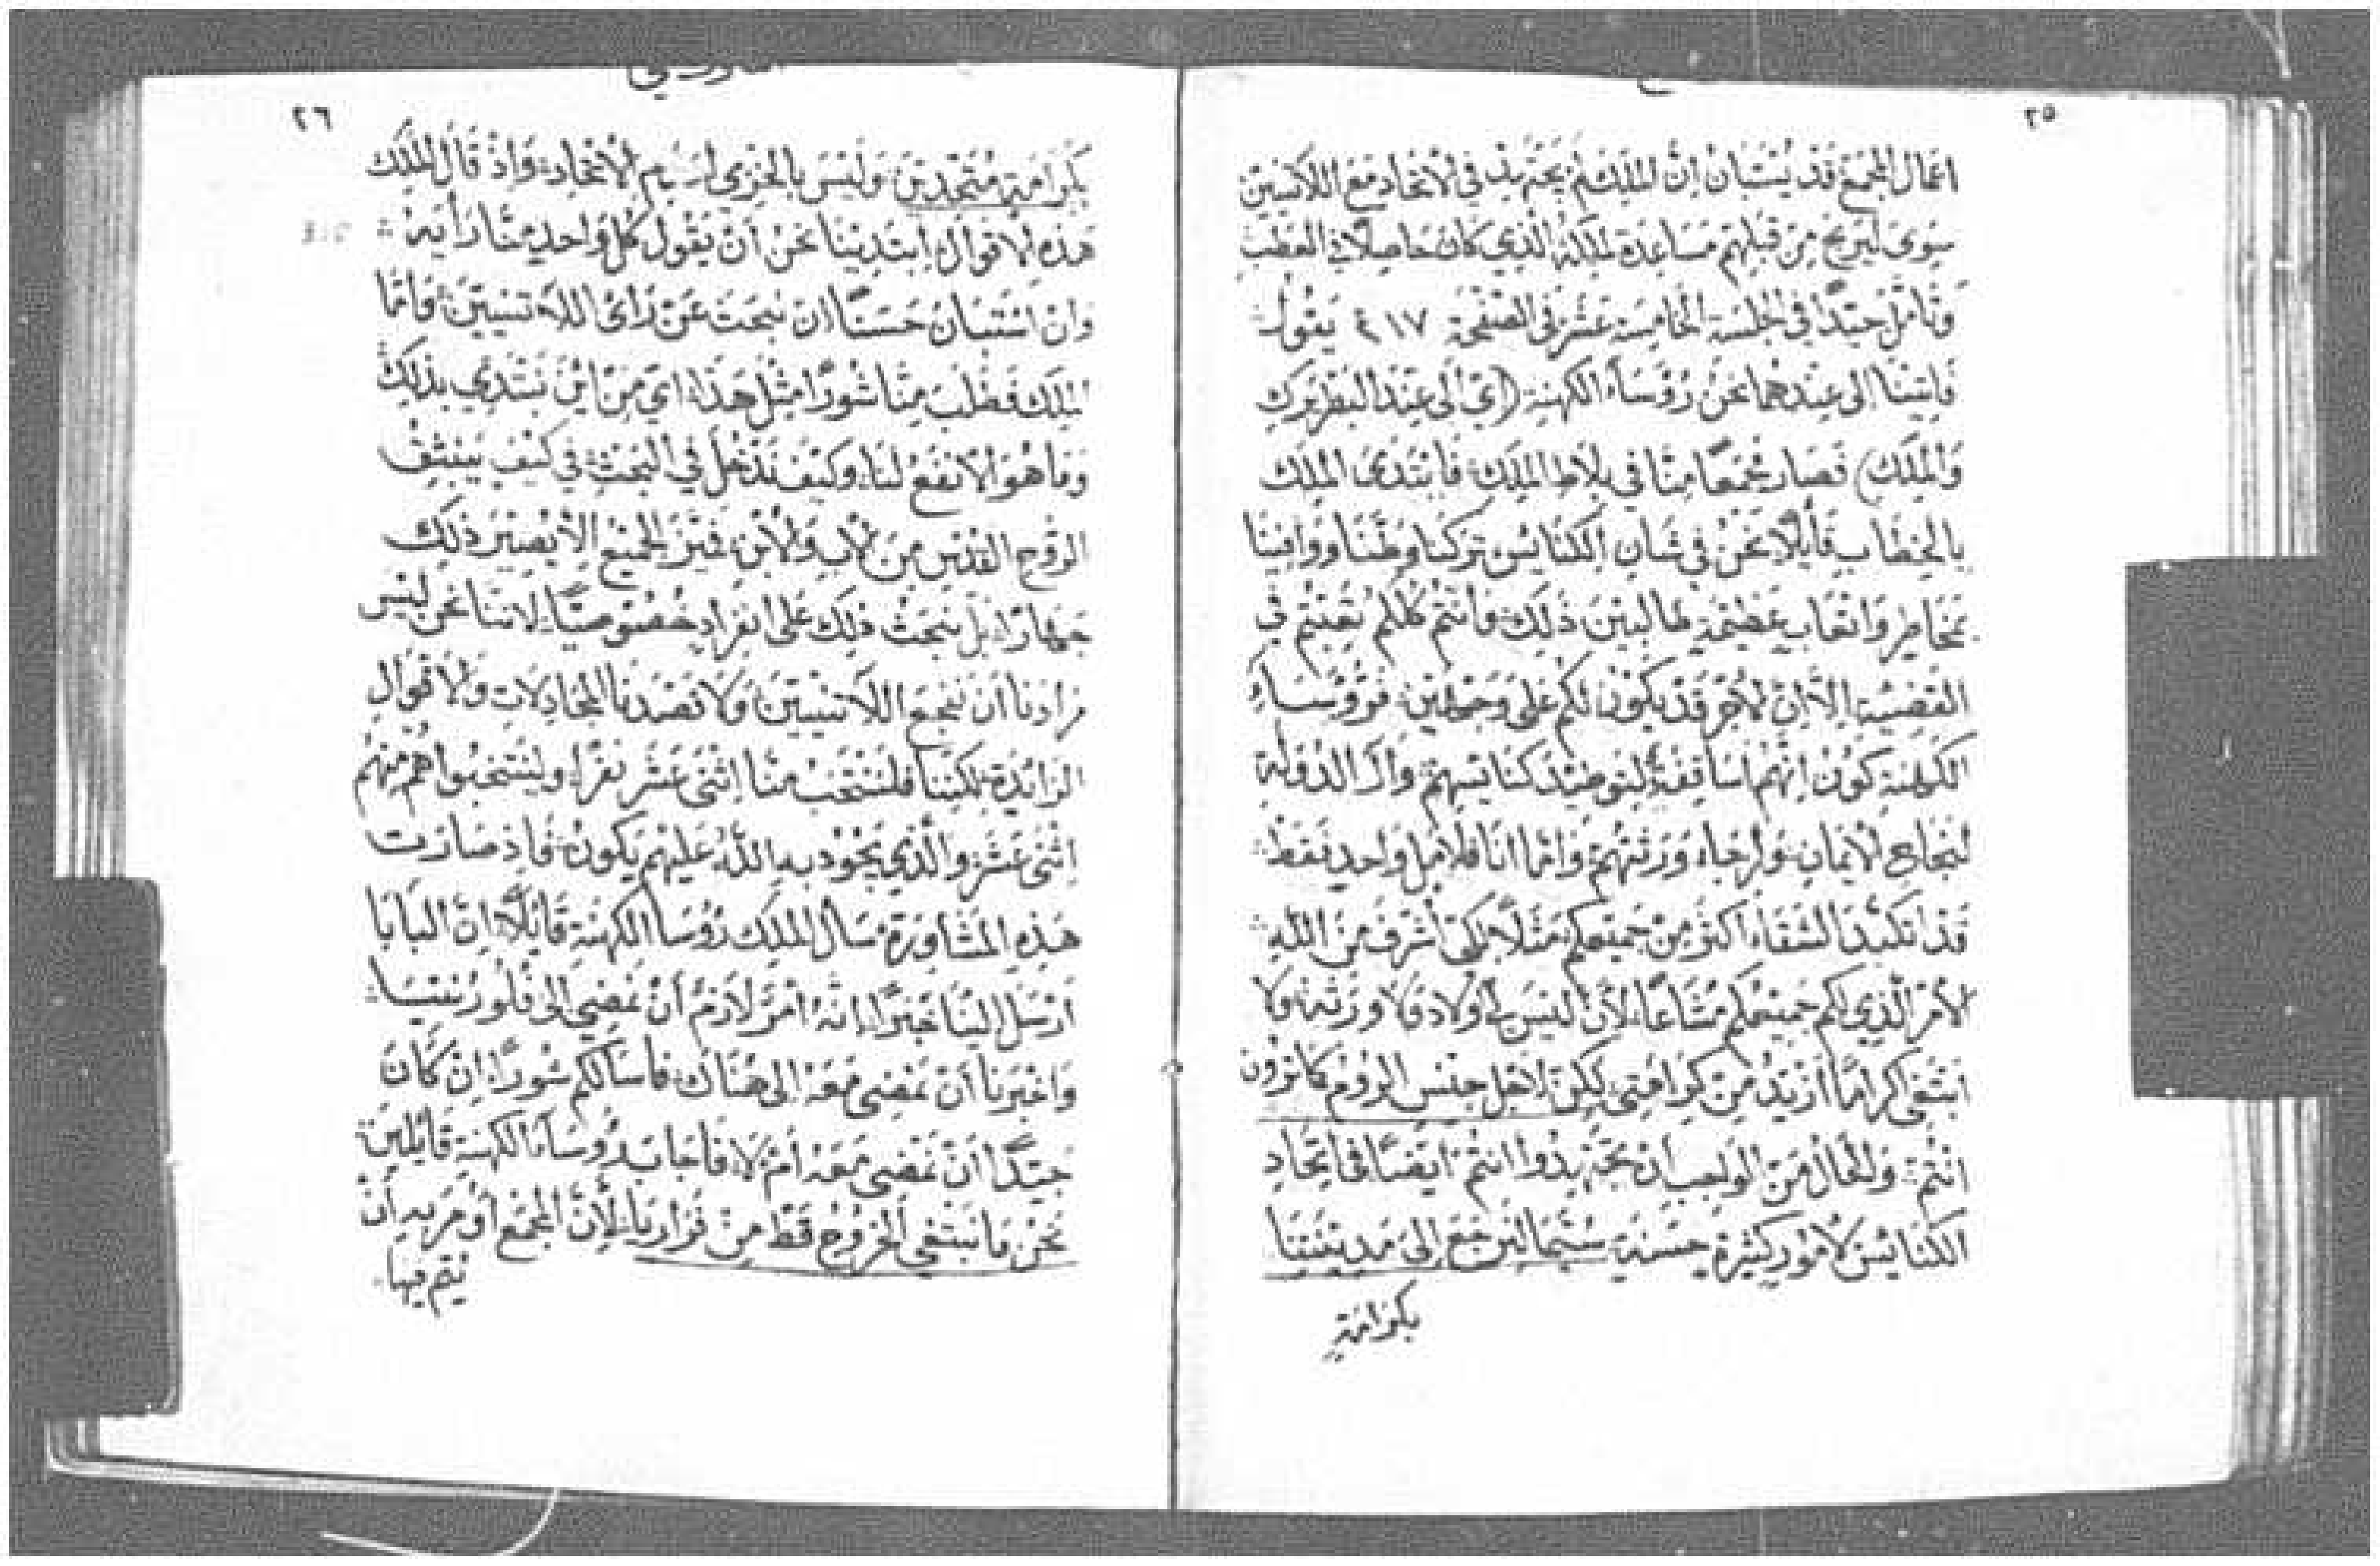 ٢٥
اعمال المجمع قد يستبان ان الملك لم يجتهد في الاتحاد مع اللاتينيين
سوى ليربح من قبلهم مساعدة لملكه الذي كان حاصلًا في العطب
وتأمل جيّدًا في الجلسة الخامسة عشر في الصفحة ٤١٧ يقول
فاتينا الى عندهما نحن رؤساء الكهنة (اي الى عند البطريرك
والملك) فصار مجمعًا منّا في بلاط الملك، فابتدى الملك
بالخطاب قايلًا نحن في شان الكنايس تركنا وطننا ووافينا
بمخاطر واتعاب عظيمة طالبين ذلك، وانتم كلكم تعبتم في
القضية إلّا انّ الاجر قد يكون لكم على وجهين، فرؤساء
الكهنة كون انهم اساقفة لتوطيد كنايسهم، وآل الدولة
لنجاح الايمان، ولرجاء ورثتهم، وامّا انا فلامل واحد فقط
قد اتكبد الشقاء اكثر من جميعكم مثلًا لكي أشرف من الله
الامر الذي لكم جميعكم مشاعًا، لأن ليس لي أولاد ولا ورثة، ولا
ابتغي اكرامًا أزيد من كرامتي، لكن لاجل جنس الروم كما ترون
انتم: والحال من الواجب ان تجتهدوا انتم ايضًا في اتحاد
الكنايس لامور كثيرة حسنة، سيّما لنرجع إلى مدينتنا
بكرامة
٢٦
بكرامة متحدين، وليس بالخزي لسبب عدم الاتحاد، واذ قال الملك
هذه الاقوال، ابتدينا نحن أن يقول كل واحد منّا رأيه:
وان استبان حسنًا ان نبحث عن رأي اللاتينيين، وامّا
الملك فطلب منّا شورًا مثل هذا، اي من اين نبتدي بذلك
وما هو الانفع لنا، وكيف ندخل في البحث، في كيف ينبثق
الروح القدس من الآب والابن، فميّز الجميع الّا يصير ذلك
جهارًا، بل نبحث ذلك على انفراد خصوصيًا، لاننا نحن ليس
مرادنا أن نبجع اللاتينيين، ولا قصدنا المجادلات والاقوال
الزائدة، لكننا فلننتخب منّا اثنى عشر نفرًا، ولينتخبوا هم منهم
اثنى عشر، والذي يجود به الله عليهم يكون: فاذ صارت
هذه المشاورة، سأل الملك رؤسا الكهنة قايلًا، ان البابا
أرسل الينا خبرًا، انه امر لازم أن نمضي الى فلورنتيا:
واخبرنا أن نمضى معه الى هناك، فاسألكم شورًا، ان كان
جيّدًا أن نمضي معه أم لا، فاجاب رؤساء الكهنة قايلين
نحن ما نبتغي الخروج قط من فراريا، لأن المجمع أومر به أن
يتم فيها